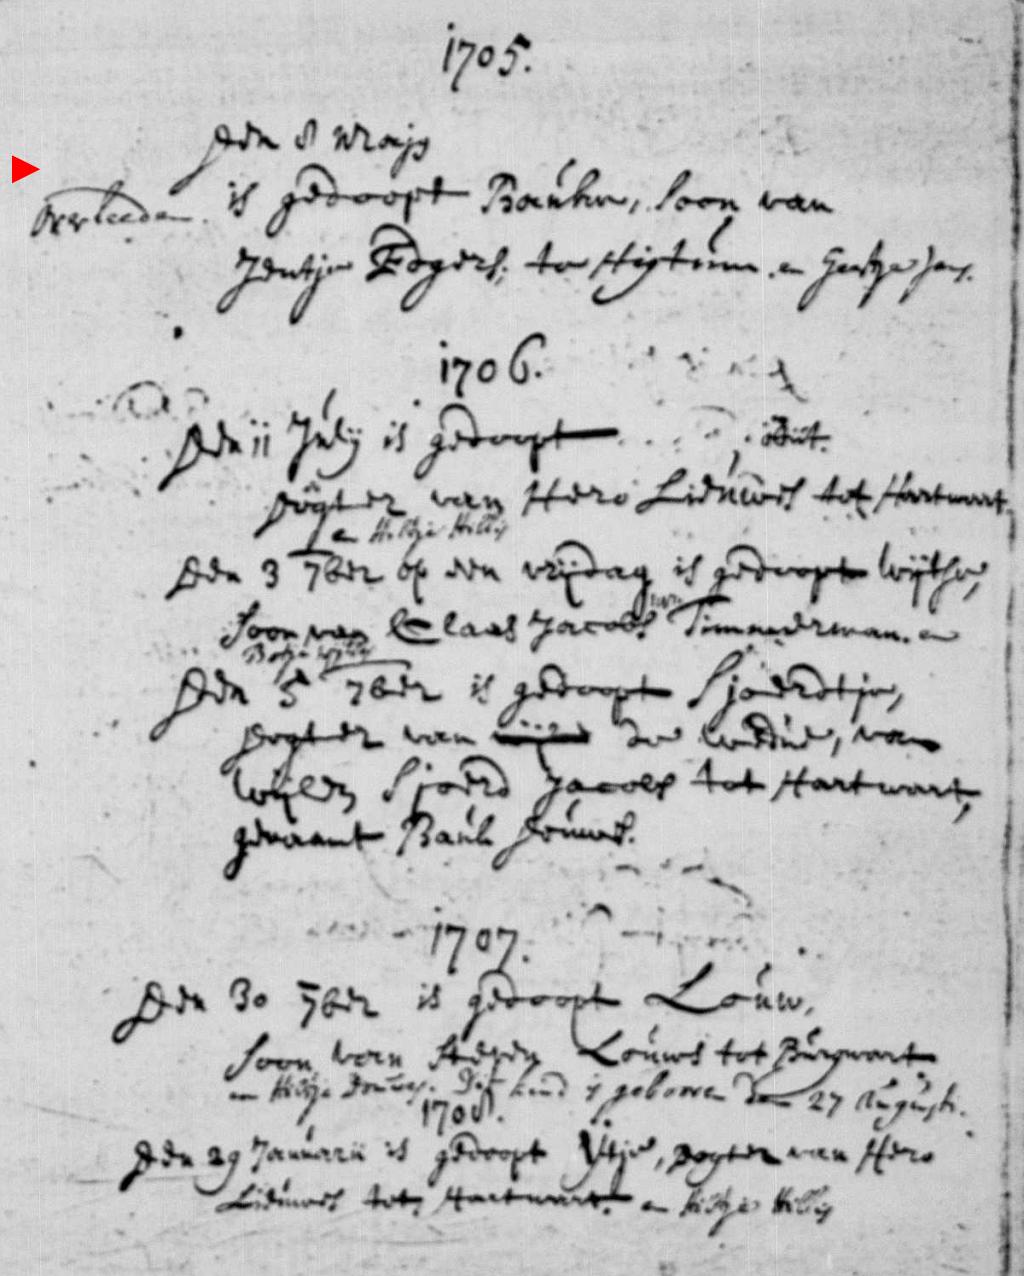 1705.
Den 8 Maijs
Overleeden.
is gedoopt Bauke, soon van
Jentje Edgers, te Hijtum. en Geertje Jans.
1706.
Den 11 Julij is gedoopt obiit.
dogter van Hero Lieuwes tot Hartwart
en Hiltje Hillis
Den 3 7ber op een vrijdag is gedoopt Wijtse,
Soon van Claas Jacobs Timmerman. en
Den 5 7ber is gedoopt Sjoerdtje,
dogter van de weduw, van
wijlen Sjoerd Jacobs tot Hartwart,
genaamt Bauk Douwes.
1707.
Den 30 7ber is gedoopt Louw,
soon van Steven Louws tot Burgwart
en Hiltje Douwes. Dit kind is geboren den 27 Augusti.
1708.
Den 29 Januarii is gedoopt Ytje, dogter van Hero
Lieuwes tot Hartwart. en Hiltje Hillis